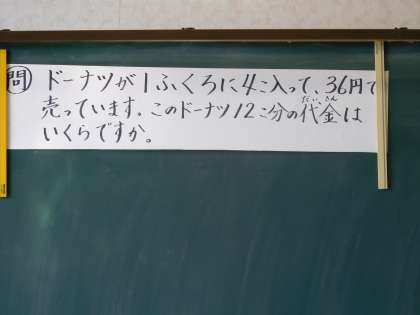 問 ドーナツが1ふくろに4こ入って、36円で
売っています。このドーナツ12こ分の代金は
いくらですか。
だいきん